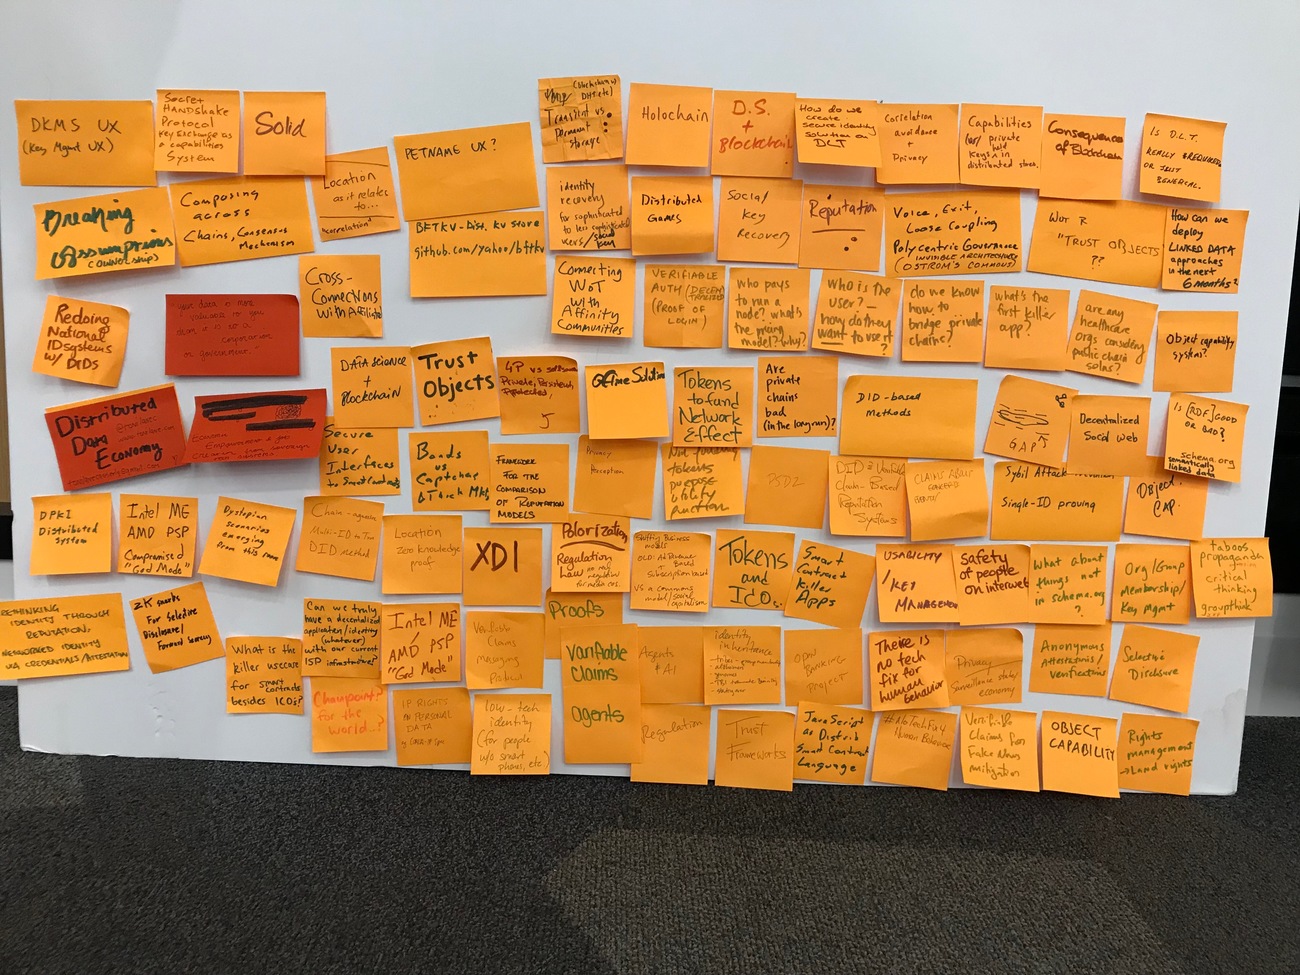 DKMS UX
(Key Mgmt UX)
Secret
HANDSHAKE
Protocol
Key Exchange as
a capabilities
System
Solid
Location
as it relates
to...
correlation
PETNAME UX?
(blockchain vs
DHT etc)
Transient vs.
permanent
storage
Holochain
D.S.
+
Blockchain
How do we
create
secure identity
solution on
DLT
Correlation
avoidance
+
Privacy
Capabilities
(w/ private
keys in
distributed stores
Consequences
of Blockchain
Is D.L.T.
REALLY REQUIRED
OR JUST
GENERCAL.
Breaking
Assumptions
(OWNERSHIP)
Composing
across
Chains, Consensus
Mechanism
BFTKV - Dist. KV store
github.com/yahoo/bftkv
identity
recovery
for sophisticated
to less sophisticated
users/social
key
Distributed
Games
Social/
Key
Recovery
Reputation
Voice, Exit,
Loose Coupling
Polycentric Governance
INVISIBLE ARCHITECTURES
(OSTROM'S COMMONS)
WoT R
"TRUST OBJECTS"
??
How can we
deploy
LINKED DATA
approaches
in the next
6 months?
Cross-
Connections
with Affiliated
Connecting
WoT
with
Affinity
Communities
VERIFIABLE
AUTH (DECEN
TRALIZED)
(PROOF OF
LOGIN)
who pays
to run a
node? what's
the pricing
model? why?
who is the
user? —
how do they
want to use it
?
do we know
how to
bridge private
chains?
what's the
first killer
app?
are any
healthcare
orgs considering
public chain
solns?
Object capability
system?
Redoing
National
ID systems
w/ DIDs
your data is more
valuable to you
than it is to a
corporation
or government.
DATA SCIENCE
+
BLOCKCHAIN
Trust
Objects
4P vs
Private, Persistent,
Protected,
QTime Solution
Tokens
to fund
Network
Effect
Are
private
chains
bad
(in the long run)?
DID-based
Methods
GAP
Decentralized
Social web
Is [RDF] GOOD
OR BAD?
schema.org
semantically
linked data
Distributed
Data
Economy
Secure
User
Interfaces
to Smart Contracts
Bonds
vs
Captchas
Framework
FOR THE
COMPARISON
OF REPUTATION
MODELS
Privacy
Perception
tokens
purpose
utility
function
PSD2
DID &
Chain-Based
Reputation
Systems
CLAIMS ABOUT
Sybil Attack
Single-ID proving
OBJECT
CAP.
DPKI
Distributed
System
Intel ME
AMD PSP
Compromised
"God Mode"
Dystopian
scenarios
emerging
from this
Chain-agnostic
Multi-ID
DID method
Location
zero knowledge
proof
XDI
Polarization
Regulation
Law
business
models
OLD: Ad Revenue
Subscription based
vs a commons
model/social
capitalism
Tokens
and
ICO..
Smart
Contract
Killer
Apps
USABILITY
/KEY
MANAGEMENT
Safety
of people
on internet
what about
things not
in schema.org
?
Org/Group
Membership/
Key Mgmt
taboos
propaganda
critical
thinking
groupthink
RETHINKING
IDENTITY THROUGH
REPUTATION:
NETWORKED IDENTITY
VIA CREDENTIALS/ATTESTATION
ZK snarks
for Selective
Disclosure/
Forward Secrecy
What is the
killer usecase
for smart
contracts
besides ICOs?
Can we truly
have a decentralized
application/identity
(whatever)
with our current
ISP infrastructure?
Intel ME
AMD PSP
"God Mode"
Verifiable
Claims
messaging
Protocol
Proofs
Varifiable
Claims
agents
Agents
+ AI
identity
inheritence
OPEN
BANKING
PROJECT
There is
no tech
fix for
human
behavior
Privacy
Surveillance state/
economy
Anonymous
Attestations/
verifications
Selective
Disclosure
Chainpoint?
for the
world..?
IP RIGHTS
ON PERSONAL
DATA
low-tech
identity
(for people
w/o smart
phones, etc)
Regulation
Trust
Frameworks
JavaScript
as Distrib
Smart Contract
Language
#NoTechFix4
Human Behavior
Verifiable
Claims for
Fake News
mitigation
OBJECT
CAPABILITY
Rights
management
→Land rights